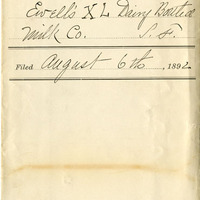 Ewell's XL Dairy Bottled
Milk Co. S. F.
Filed August 6th, 1892